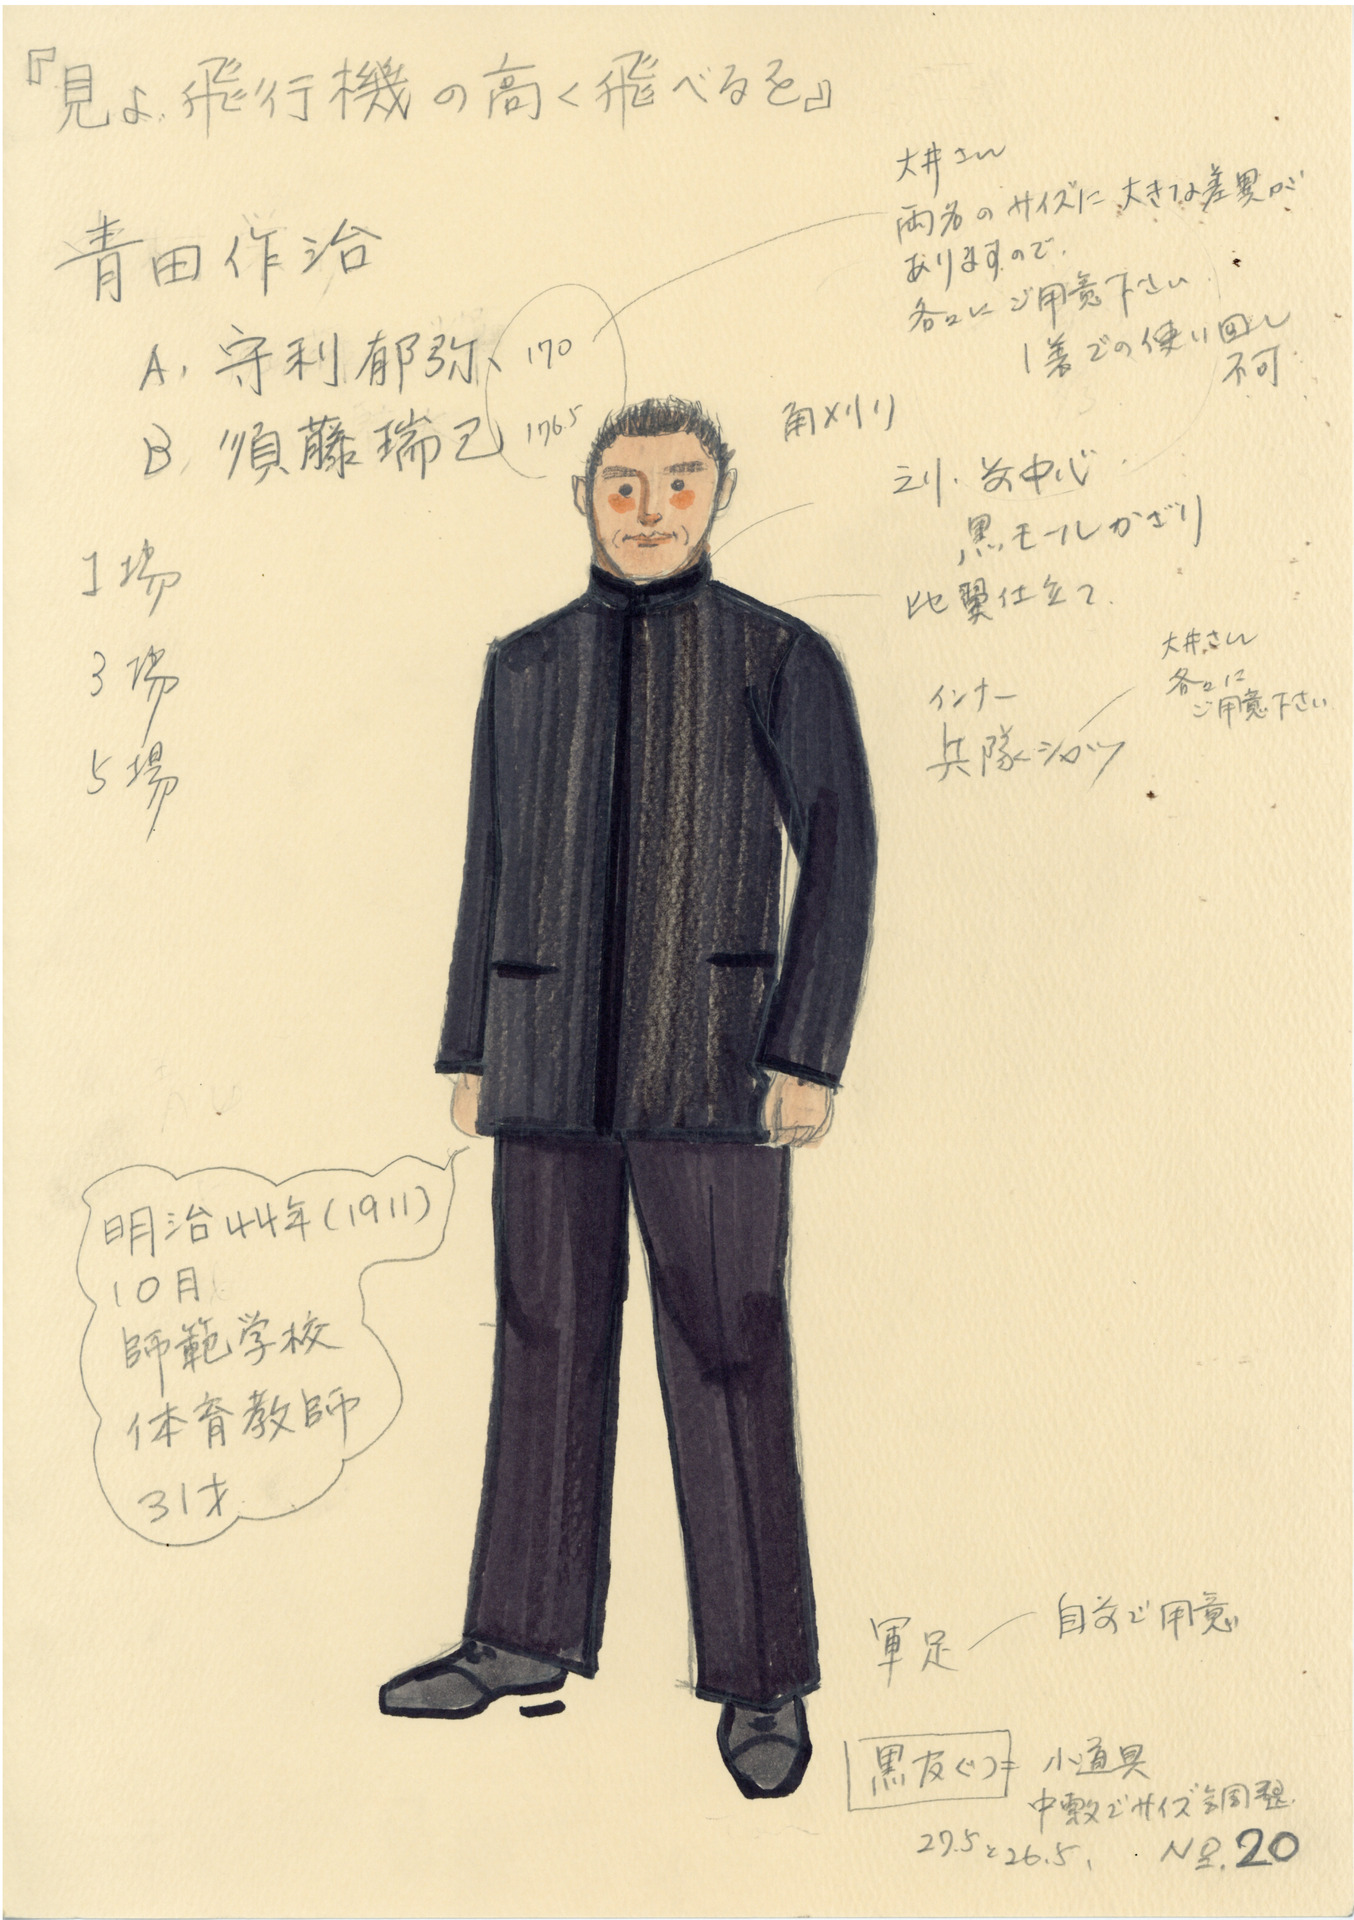 『見よ、飛行機の高く飛べるを』
青田作治
A. 守利郁弥 170
B. 須藤瑞己 176.5
1場
3場
5場
大井さん
両名のサイズに大きな差異が
ありますので、
各々にご用意下さい
1着での使い回し
不可
角刈り
エリ・前中心
黒モールかざり
比翼仕立て
インナー
兵隊シャツ
大井さん
各々に
ご用意下さい
明治44年(1911)
10月
師範学校
体育教師
31才
軍足 自前で用意
黒皮ぐつ= 小道具
中敷でサイズ調整
27.5と26.5、
No.20